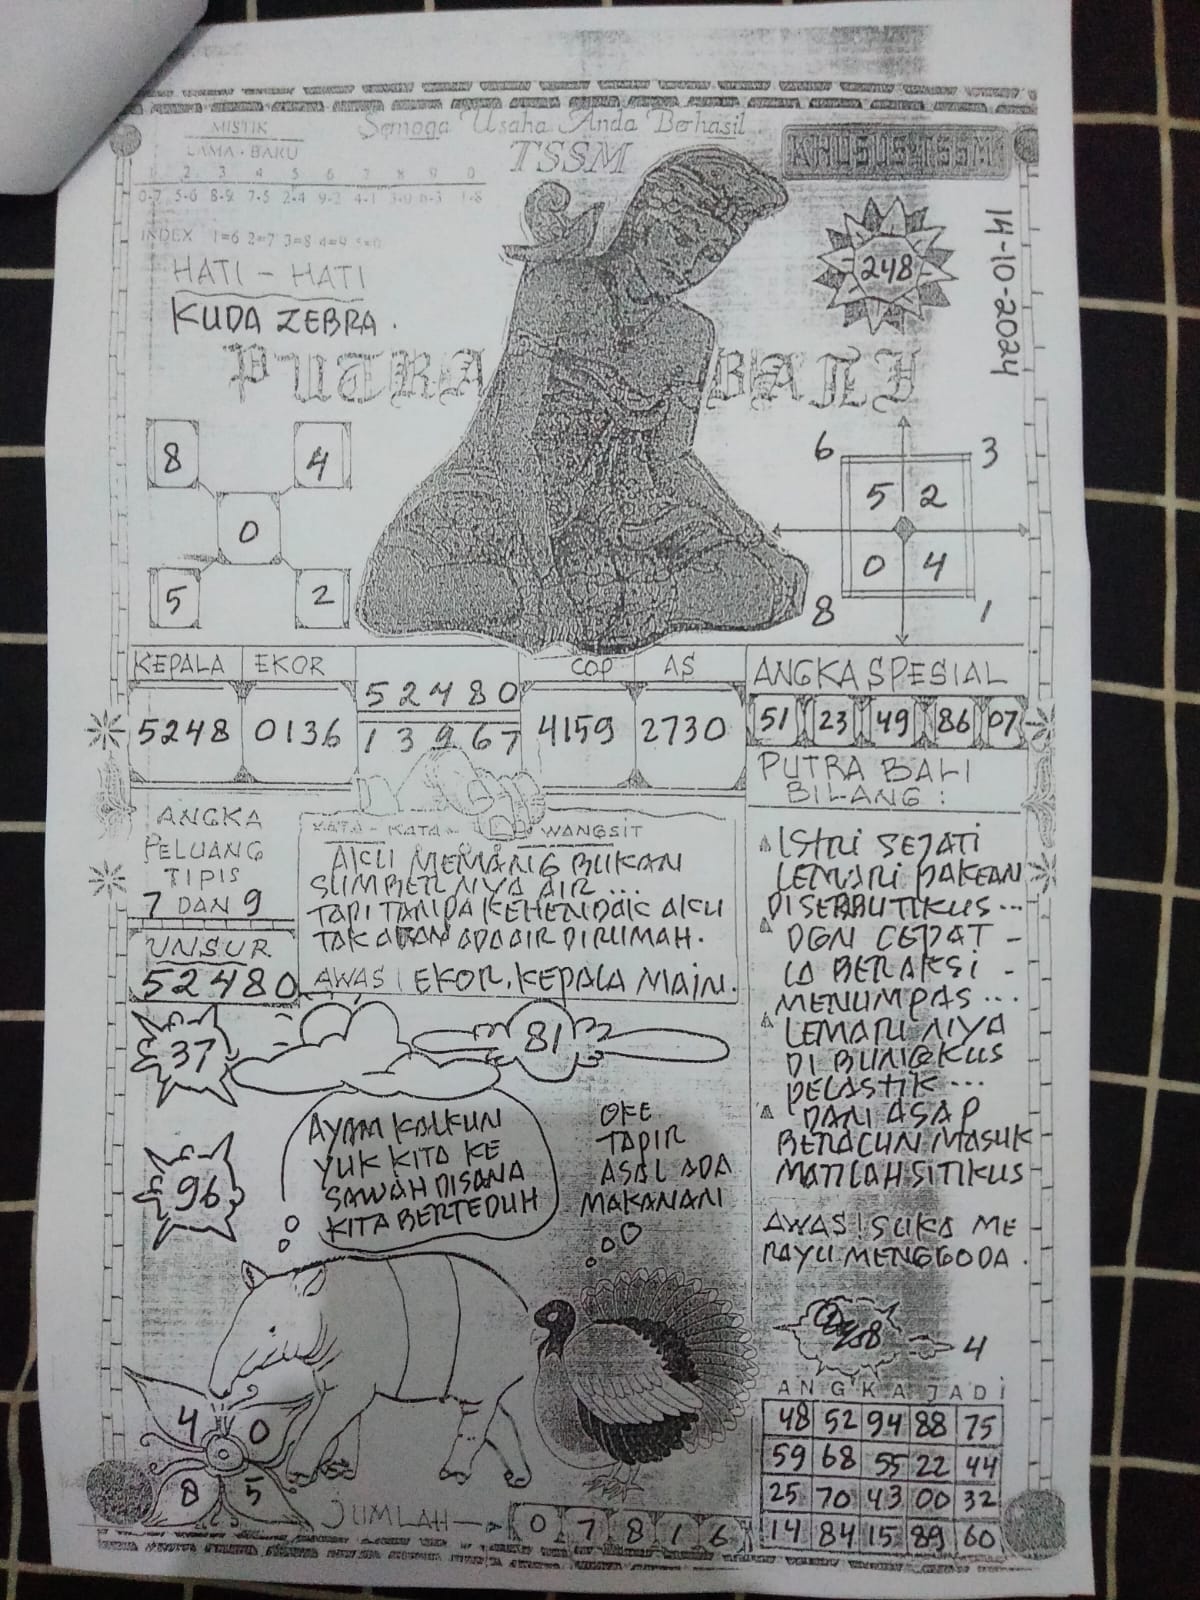 MISTIK
Semoga Usaha Anda Berhasil
TSSM
KHUSUS TSSM
LAMA - BARU
2 3 4 5 6 7 8 9 0
0-7 5-6 8-9 7-5 2-4 9-2 4-1 3-0 6-3 1-8
INDEX 1=6 2=7 3=8 4=9 5=0
HATI - HATI
KUDA ZEBRA.
248
14-10-2024
PUTRA BALI
8 4
0
5 2
6 3
5 2
0 4
8 1
KEPALA EKOR
5248 0136
52480
13967
COP AS
4159 2730
ANGKA SPESIAL
51 23 49 86 07
PUTRA BALI
BILANG :
ANGKA
PELUANG
TIPIS
7 DAN 9
UNSUR
52480
KATA - KATA - WANGSIT
AKU MEMANG BUKAN
SUMBER NYA AIR ...
TAPI TANPA KEHENDAK AKU
TAK AKAN ADA AIR DIRUMAH.
AWAS! EKOR. KEPALA MAIN.
ISTRI SEJATI
LEMARI PAKEAN
DI SERBU TIKUS ...
DGN CEPAT -
IA BERAKSI -
MENUMPAS ...
LEMARI NYA
DI BUNGKUS
PELASTIK ...
DAN ASAP
BERACUN MASUK
MATILAH SI TIKUS
AWAS! SUKA ME
RAYU MENGGODA.
37
81
96
AYAM KALKUN
YUK KITA KE
SAWAH DISANA
KITA BERTEDUH
OKE
TAPIR
ASAL ADA
MAKANAN
4
ANGKA JADI
48 52 94 88 75
59 68 55 22 44
25 70 43 00 32
14 84 15 89 60
4 0
8 5
JUMLAH
0 7 8 1 6